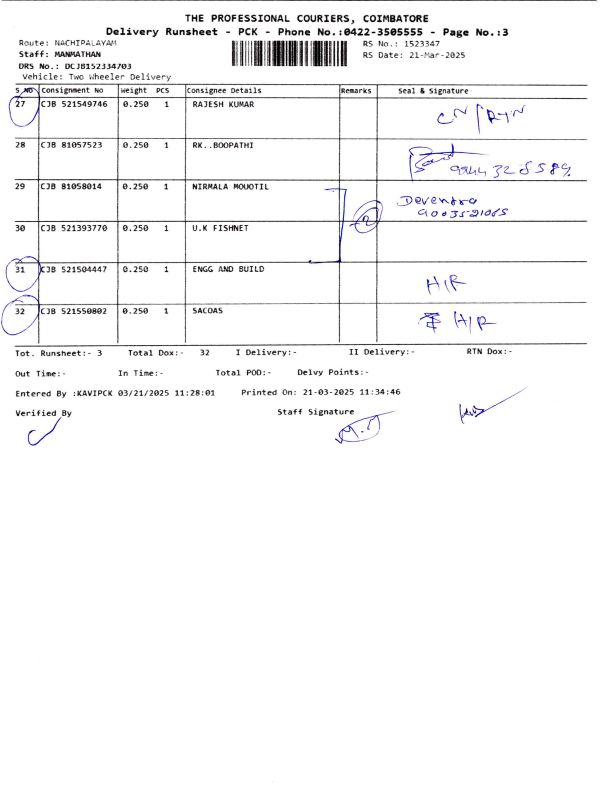 THE PROFESSIONAL COURIERS, COIMBATORE
Delivery Runsheet - PCK - Phone No.:0422-3505555 - Page No.:3
Route: NACHIPALAYAM
RS No.: 1523347
Staff: MANMATHAN
RS Date: 21-Mar-2025
DRS No.: DCJB152334703
Vehicle: Two Wheeler Delivery
S.NO Consignment No Weight PCS Consignee Details Remarks Seal & Signature
27 CJB 521549746 0.250 1 RAJESH KUMAR CN/RTN
28 CJB 81057523 0.250 1 RK..BOOPATHI
29 CJB 81058014 0.250 1 NIRMALA MOUOTIL 2 Devendra
9003521065
30 CJB 521393770 0.250 1 U.K FISHNET
31 CJB 521504447 0.250 1 ENGG AND BUILD H/R
32 CJB 521550802 0.250 1 SACOAS H/R
Tot. Runsheet:- 3 Total Dox:- 32 I Delivery:- II Delivery:- RTN Dox:-
Out Time:- In Time:- Total POD:- Delvy Points:-
Entered By :KAVIPCK 03/21/2025 11:28:01 Printed On: 21-03-2025 11:34:46
Verified By Staff Signature